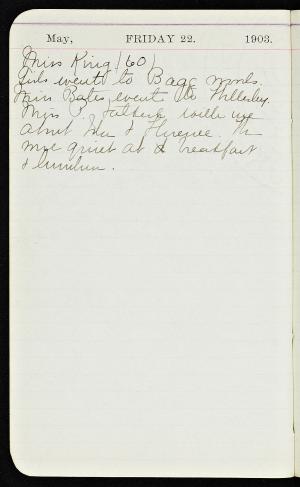 May, FRIDAY 22. 1903.
Miss King (60)
Girls went to Bagg
Miss Bates went to Wellesley.
Miss P. with me
about &
more quiet at breakfast
& luncheon.